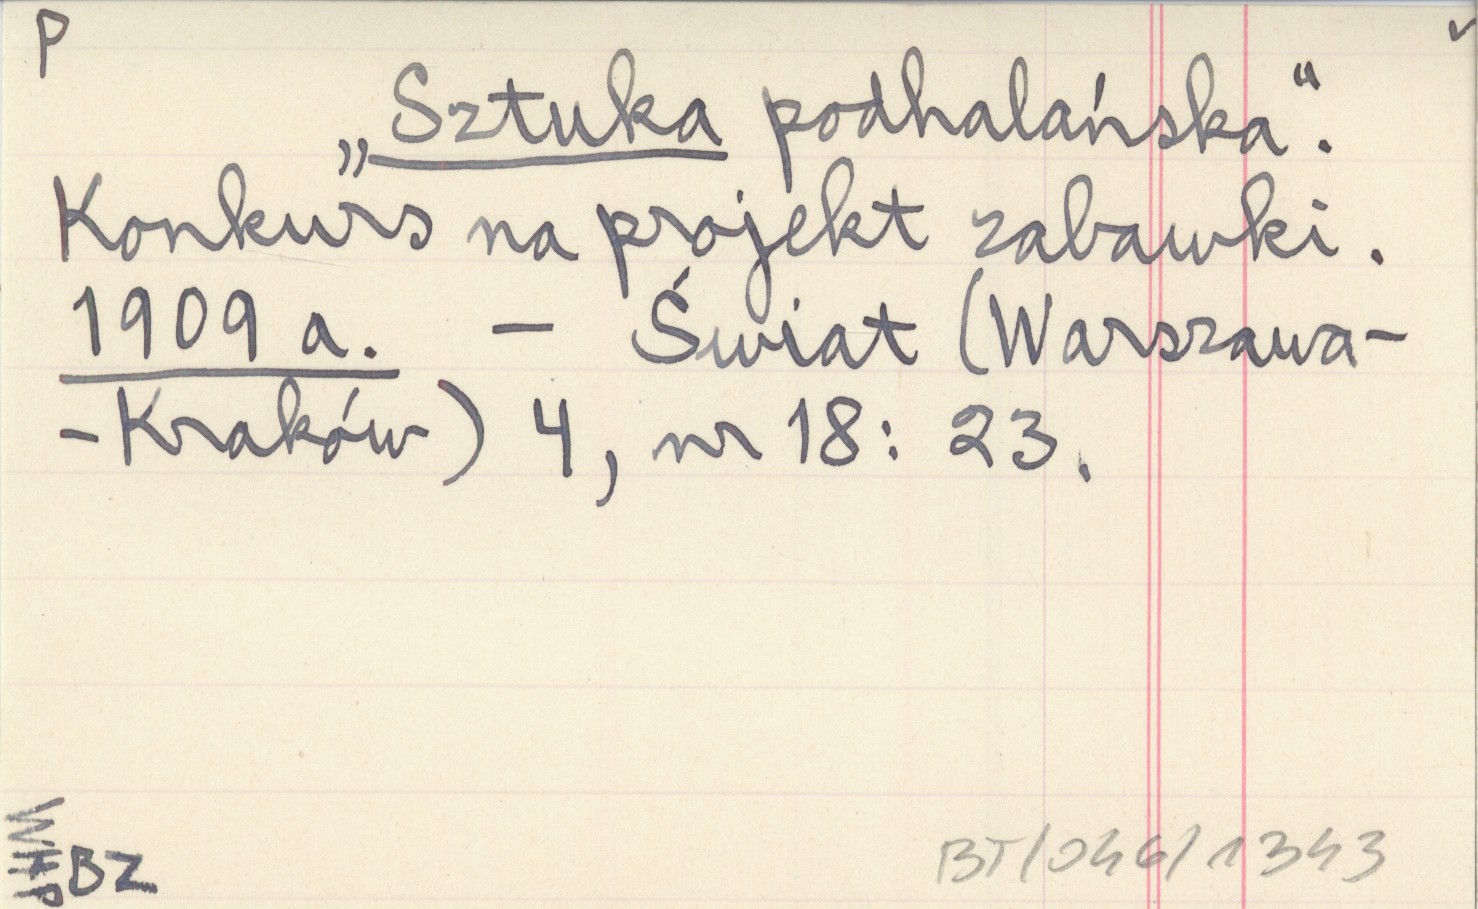 P
„Sztuka podhalańska“.
Konkurs na projekt zabawki.
1909 a. – Świat (Warszawa-
-Kraków) 4, nr 18: 23.
BZ
BT/046/1343